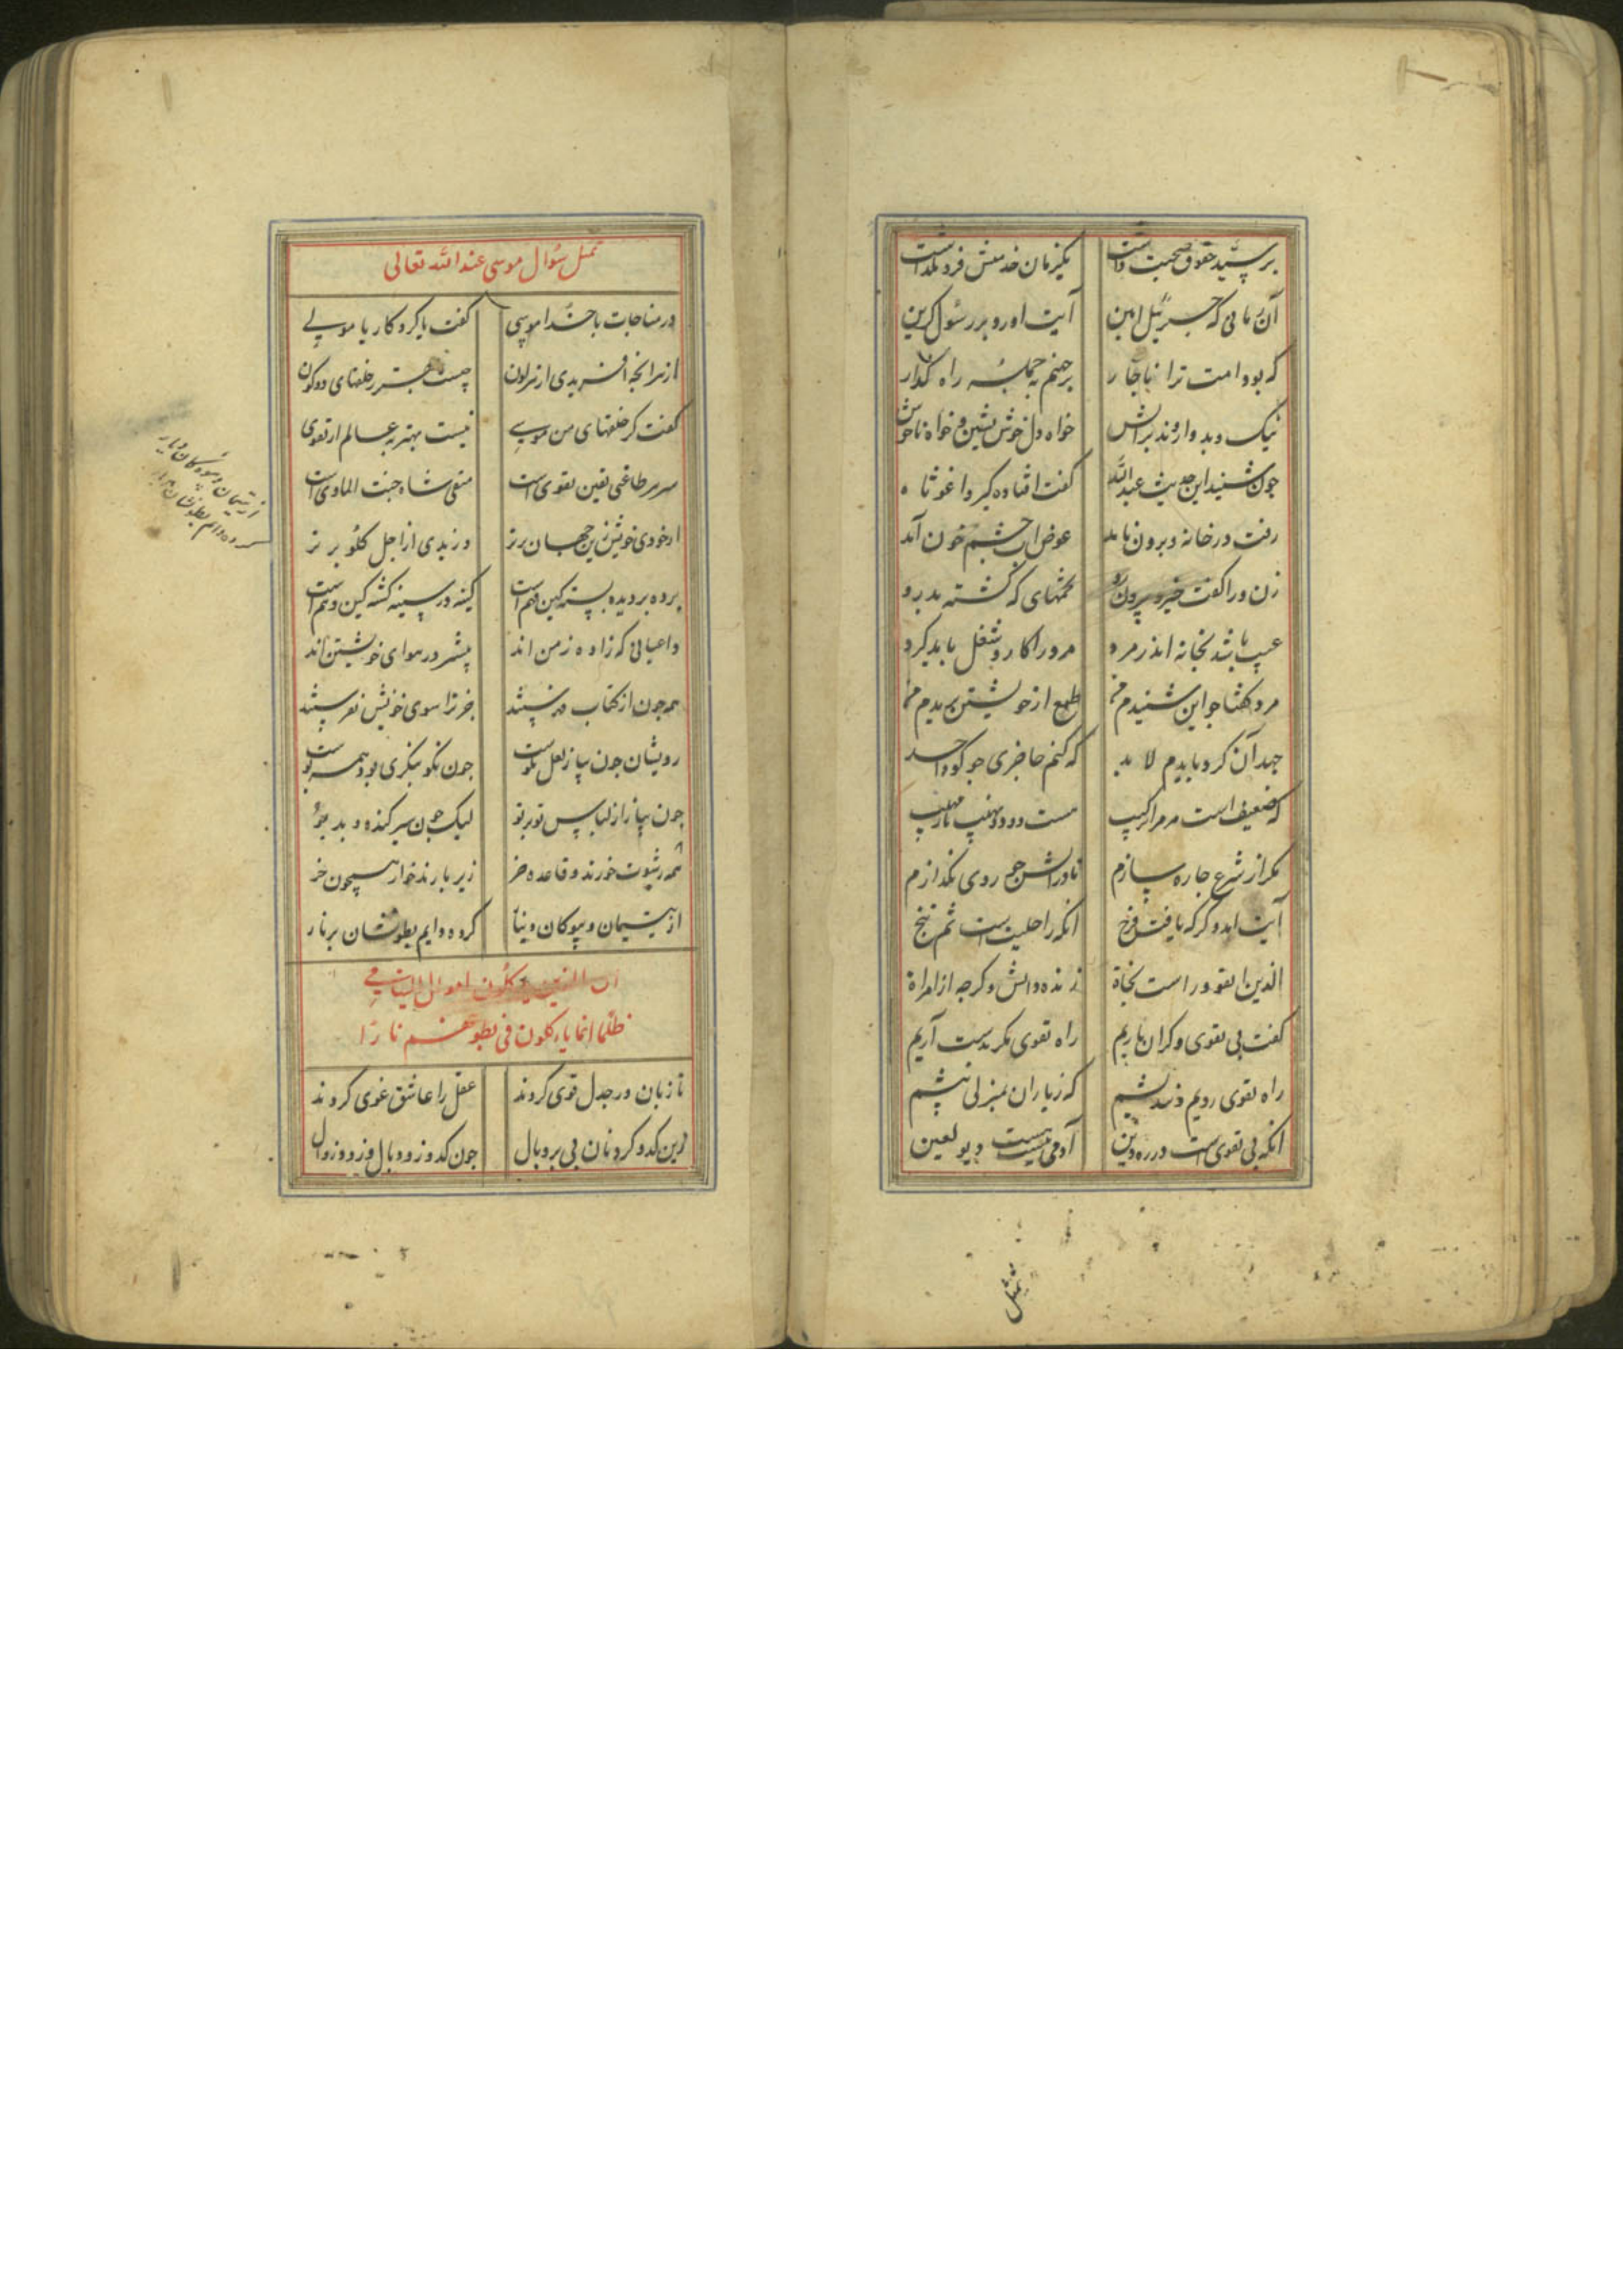 بر سید حقوق صحبت داشت یکزمان خدمتش فرو نگذاشت
آن زمانی که جبرئیل امین آیت اورد بر رسول کزین
که بود امت ترا ناجار بر جهنم همه راه کذار
نیک و بد وارونند براتش خواه دل خوش نشین و خواه ناخوش
جون شنید این حدیث عبدالله گفت افتاده کیر واغوثاه
رفت در خانه و برون نامد عوض اب جشم خون آمد
زن ورا گفت خیز و بیرون رو تخمهای که کشته بدرو
عیب باشد بخانه اندر مرد مرد را کار و شغل باید کرد
مرد گفتا جو این شنیدم من طمع از خویشتن بریدم من
جهد آن کرد بایدم لا بد که کنم حاضری جو کور و احد
که ضعیف است مر مرا ترکیب هست دوزخ نهیب نار مهیب
مکر از شرع جاره سازم تا در اتش جو روی نکدازم
آیت امد و کرکه یافت فرخ انکه را حلیت است ثم ننج
الذین اتقوا ور است نجاة
گفت بی تقوی و کران باریم راه تقوی مکر بدست آریم
راه تقوی رویم و نندیشیم که زیاران بمنزلی بیشیم
انکه بی تقوی است در ره دین آدمی نیست هست دیو لعین
تمثیل
تمثیل سؤال موسی عند الله تعالی
در مناجات با خدا موسی گفت یا کردکار یا مولی
از هر انجه افریدی از هر لون چیست بهتر ز خلقهای دو کون
گفت کز خلقهای من موسی نیست بهتر به عالم از تقوی
سر هر طاعتی یقین تقوی است متقی شاه جنت الماوی است
از خودی خویشتن زین جهان برتر ور زیدی از اجل کلو برتر
برده بر دیده بسته کین فهم است کینه در سینه کشته کین وهم است
داعیانی که زاده زمن اند بیشتر در هوای خویشتن اند
همه جون از کتاب در بیشند جز ترا سوی خویش نفریبشند
رویشان جون بیاز لعل نکوست جون نکو بنکری بود همه پوست
جون بیاز از لباس تو بر تو لیک جون سیر کنده و بد بو
همه رشوت خورند و قاعده خر زیر بارند خوار همجون خر
از یتیمان و بیوکان دینار کرده دایم بطونشان بر نار
از یتیمان و بیوه کان دینار
کرده دایم بطونشان بر نار
ان الذین یاکلون اموال الیتامی
ظلما انما یاءکلون فی بطونهم نارًا
تا زبان در جدل قوی کردند عقل را عاشق غوی کردند
زین کدو کردنان بی بر و بال جون کدو زود بال و زود زوال